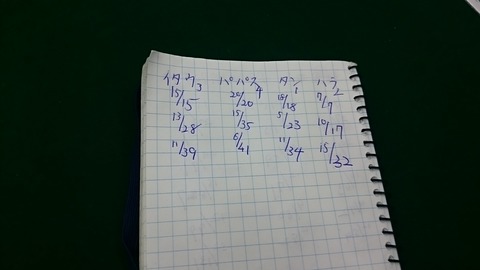 イタウ3 パパス4 タン1 ハラ2
15/15 20/20 18/18 7/7
13/28 15/35 5/23 10/17
11/39 6/41 11/34 15/32